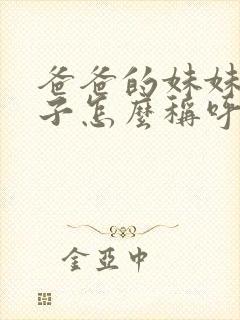 爸爸的妹妹
子怎麼稱呼
金亞中